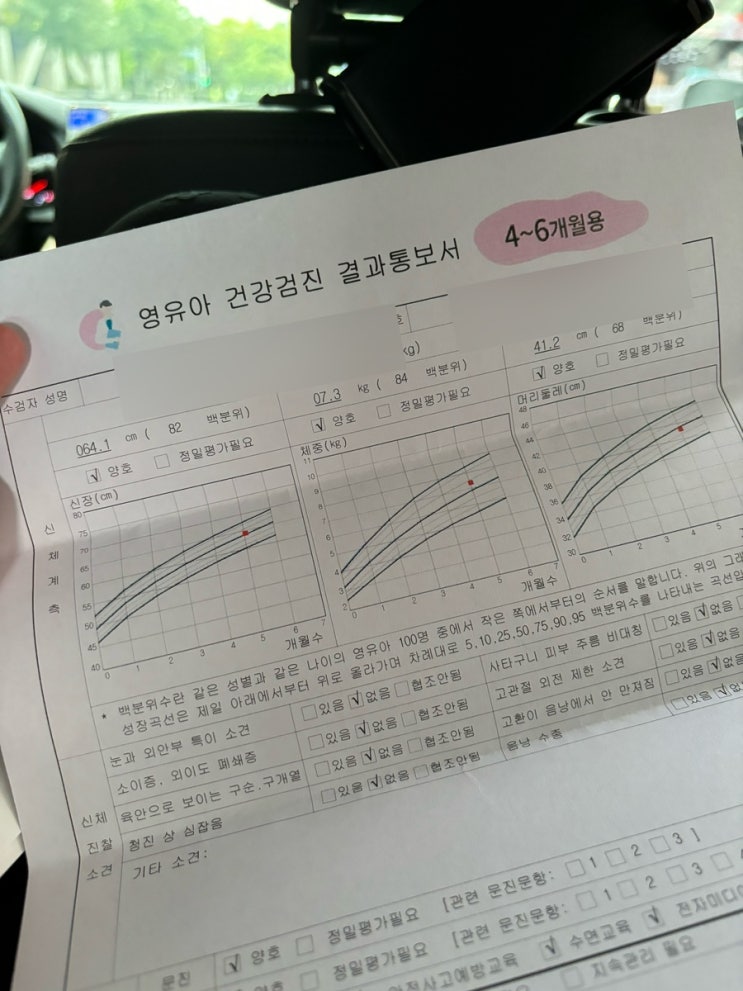 영유아 건강검진 결과통보서 4~6개월용
수검자 성명
064.1 cm ( 82 백분위)
07.3 kg ( 84 백분위)
41.2 cm ( 68 백분위)
√ 양호 □ 정밀평가필요
√ 양호 □ 정밀평가필요
√ 양호 □ 정밀평가필요
신체계측
신장(cm)
80
75
70
65
60
55
50
45
40
0 1 2 3 4 5 6 7
개월수
체중(kg)
11
10
9
8
7
6
5
4
3
2
0 1 2 3 4 5 6 7
개월수
머리둘레(cm)
48
46
44
42
40
38
36
34
32
30
0 1 2 3 4 5
* 백분위수란 같은 성별과 같은 나이의 영유아 100명 중에서 작은 쪽에서부터의 순서를 말합니다. 위의
성장곡선은 제일 아래에서부터 위로 올라가며 차례대로 5,10,25,50,75,90,95 백분위수를 나타내는
신체
진찰
소견
눈과 외안부 특이 소견 □있음 √없음 □협조안됨 사타구니 피부 주름 비대칭 □있음 √없음
소이증, 외이도 폐쇄증 □있음 √없음 □협조안됨 고관절 외전 제한 소견 □있음 √없음
육안으로 보이는 구순.구개열 □있음 √없음 □협조안됨 고환이 음낭에서 안 만져짐 □있음 √없음
청진 상 심잡음 □있음 √없음 □협조안됨 음낭 수종 □있음
기타 소견:
문진 √ 양호 □ 정밀평가필요 [관련 문진문항: □ 1 □ 2 □ 3 ]
정밀평가필요 [관련 문진문항: □ 1 □ 2 □ 3
안전사고예방교육 √ 수면교육 √
지속관리 필요